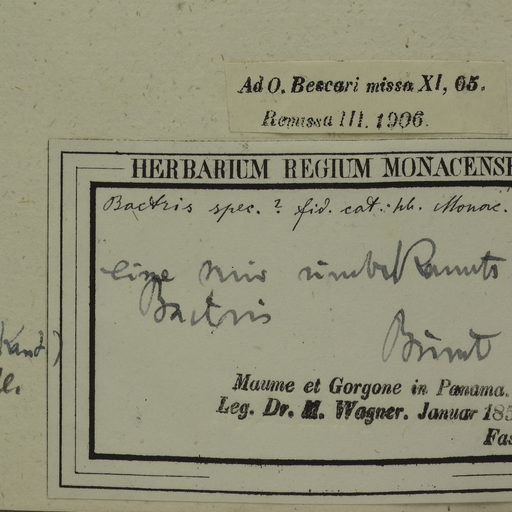 Ad O. Beccari missa XI, 05.
Remissa III. 1906.
HERBARIUM REGIUM MONACENSE
Bactris spec. ? fid. cat. hb. Monac.
eine mir unbekannte
Bactris
Maume et Gorgone in Panama.
Leg. Dr. M. Wagner. Januar 185
Fas